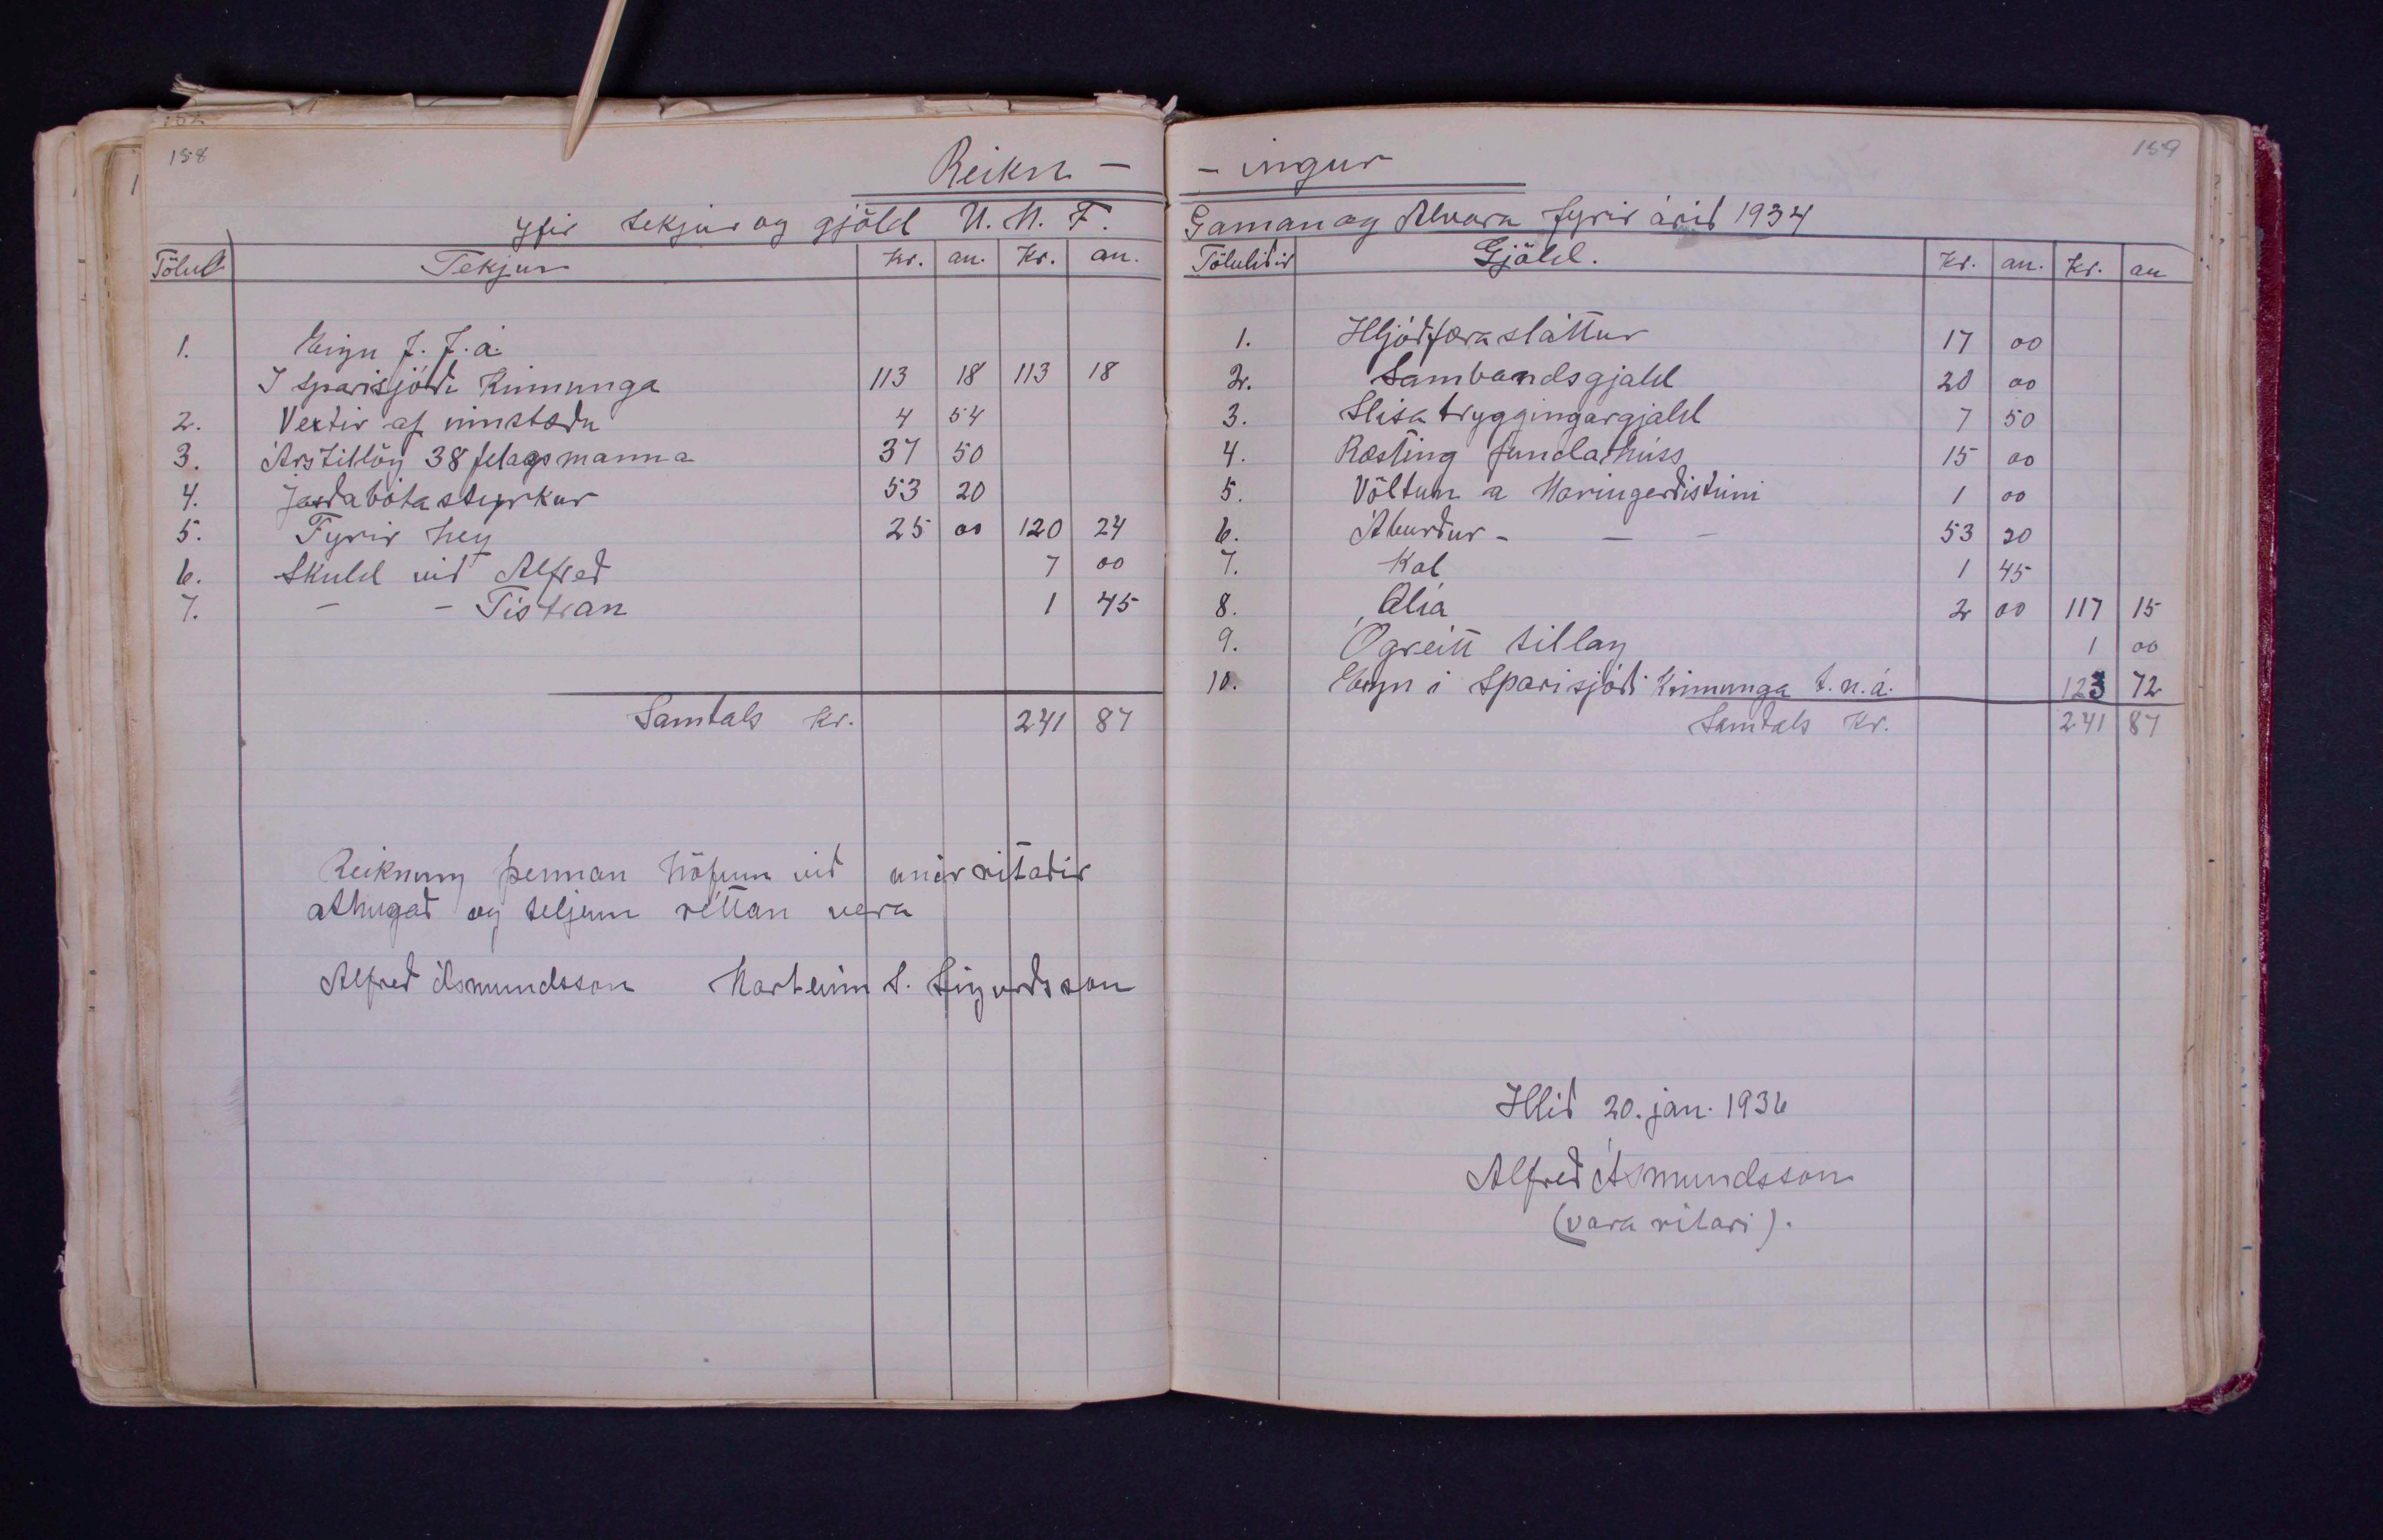 158
Reikn -
yfir tekjur og gjöld U. M. F.
Tölul Tekjur Kr. au. Kr. au.
1. Eign f. f. á.
Í sparisjóði Kinnunga 113 18 113 18
2. Vextir af innstæðu 4 54
3. Árstillög 38 félagsmanna 37 50
4. Jarðabótastyrkur 53 20
5. Fyrir hey 25 00 120 24
6. Skuld við Alfreð 7 00
7. - - Tistran 1 45
Samtals kr. 241 87
Reikning þennan höfum við undirritaðir
athugað og teljum réttan vera
Alfreð Ásmundsson Marteinn S. Sigurðsson
159
- ingur
Gaman og Alvara fyrir árið 1934
Töluliðir Gjöld. Kr. au. Kr. au
1. Hljóðfærasláttur 17 00
2. Sambandsgjald 20 00
3. Slisatryggingargjald 7 50
4. Ræsting fundarhúss 15 00
5. Völtun a 1 00
6. Áburður - - - 53 20
7. Kol 1 45
8. Olía 2 00 117 15
9. Ógreitt tillag 1 00
10. Eign i Sparisjóði Kinnunga t. n. á. 123 72
Samtals Kr. 241 87
Hlið 20. jan. 1936
Alfreð Ásmundsson
(vara ritari).